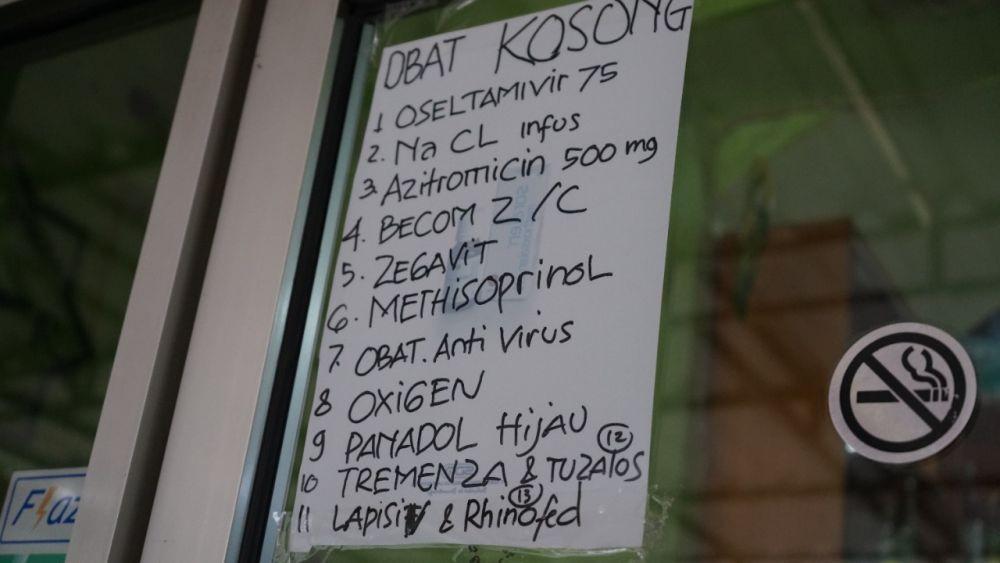 OBAT KOSONG
1 OSELTAMIVir 75
2. Na CL infus
3. Azitromicin 500 mg
4. BECOM Z/C
5. ZEGAVIT
6. METHisoprinoL
7. OBAT. Anti Virus
8 OXiGEN
9 PANADOL HijAU
10 TREMENZA & (12) TUZALOS
11 LAPISiV & (13) Rhinofed
Flaz